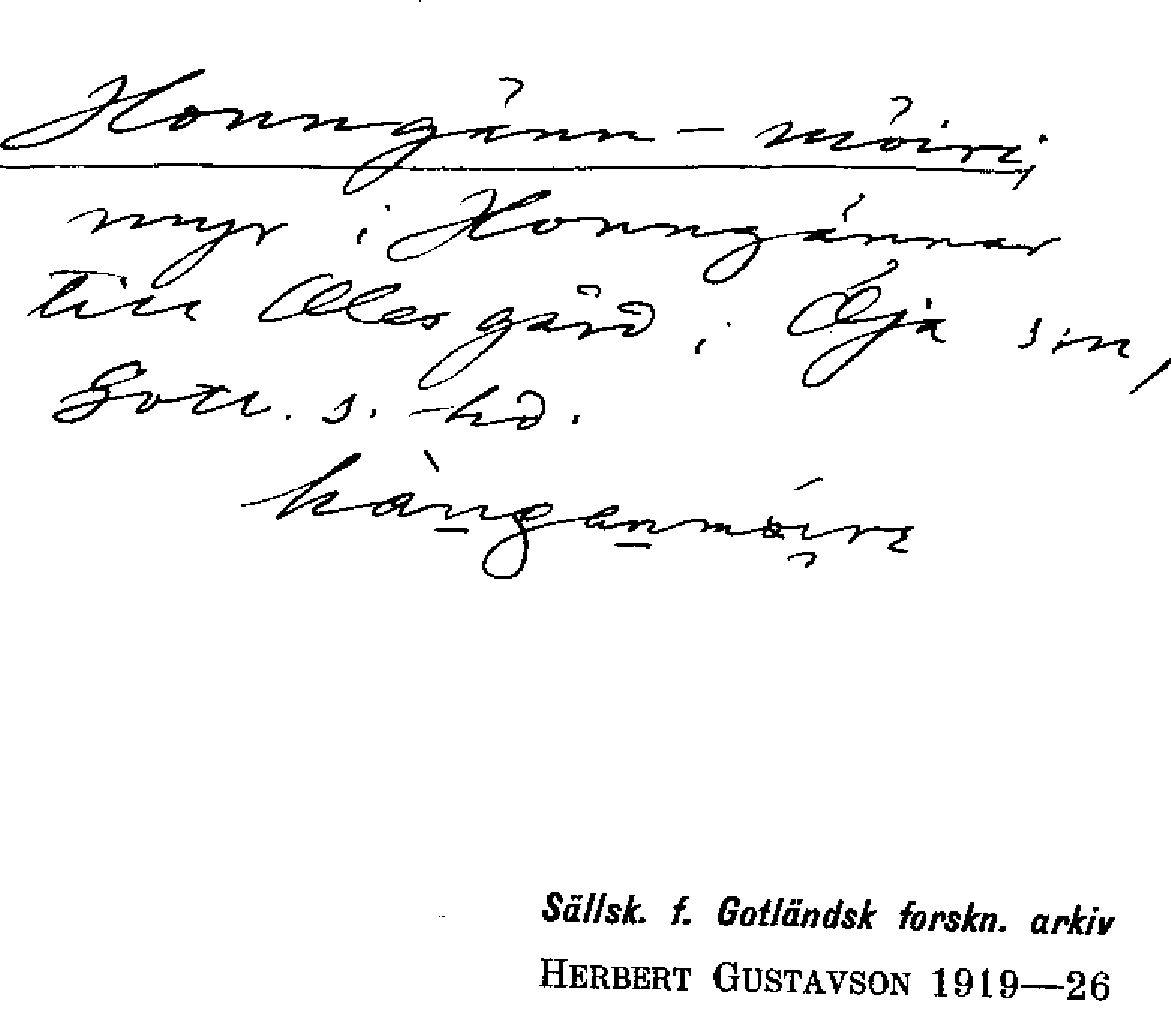 Honngänn-möiri,
myr i Honngännar
till Oles gård i Öja sn,
Gotl. s. hd.
hàngenmöire
Sällsk. f. Gotländsk forskn. arkiv
HERBERT GUSTAVSON 1919—26